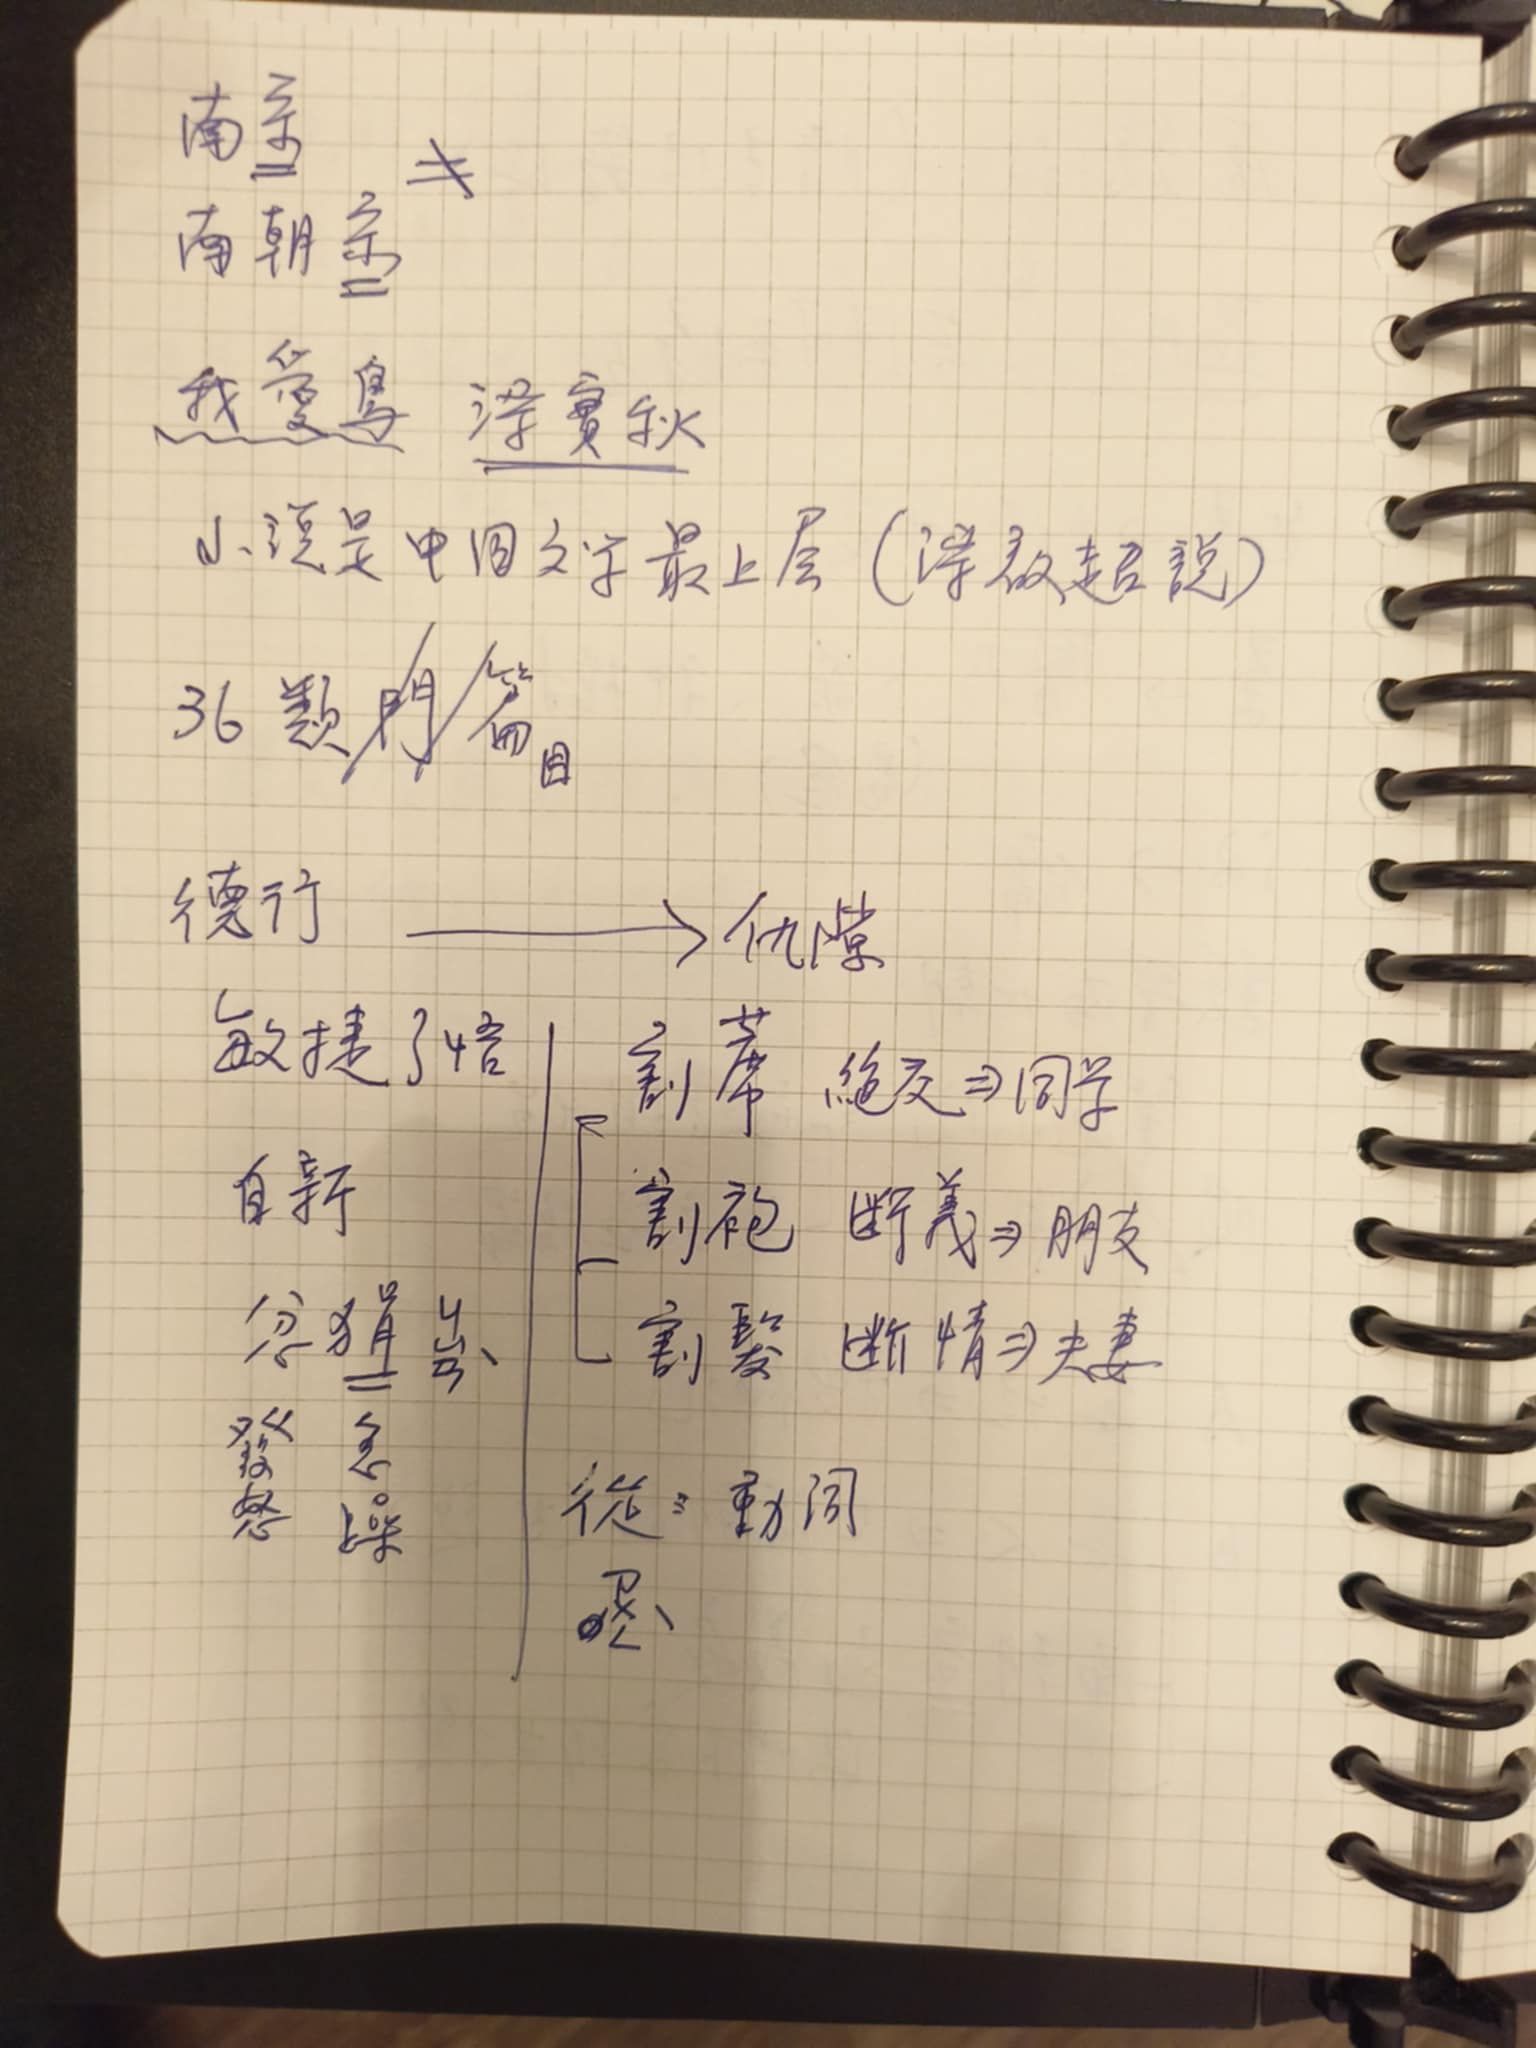 南宋 ≠
南朝宋
我愛鳥 梁實秋
小說是中国文学最上层(梁啟超說)
36類/門/篇目
德行 → 仇隙
敏捷了悟
割蓆 絕交⇒同学
自新
割袍 断義⇒朋友
忿狷
割髮 断情⇒夫妻
發怒 急躁
從: 動詞